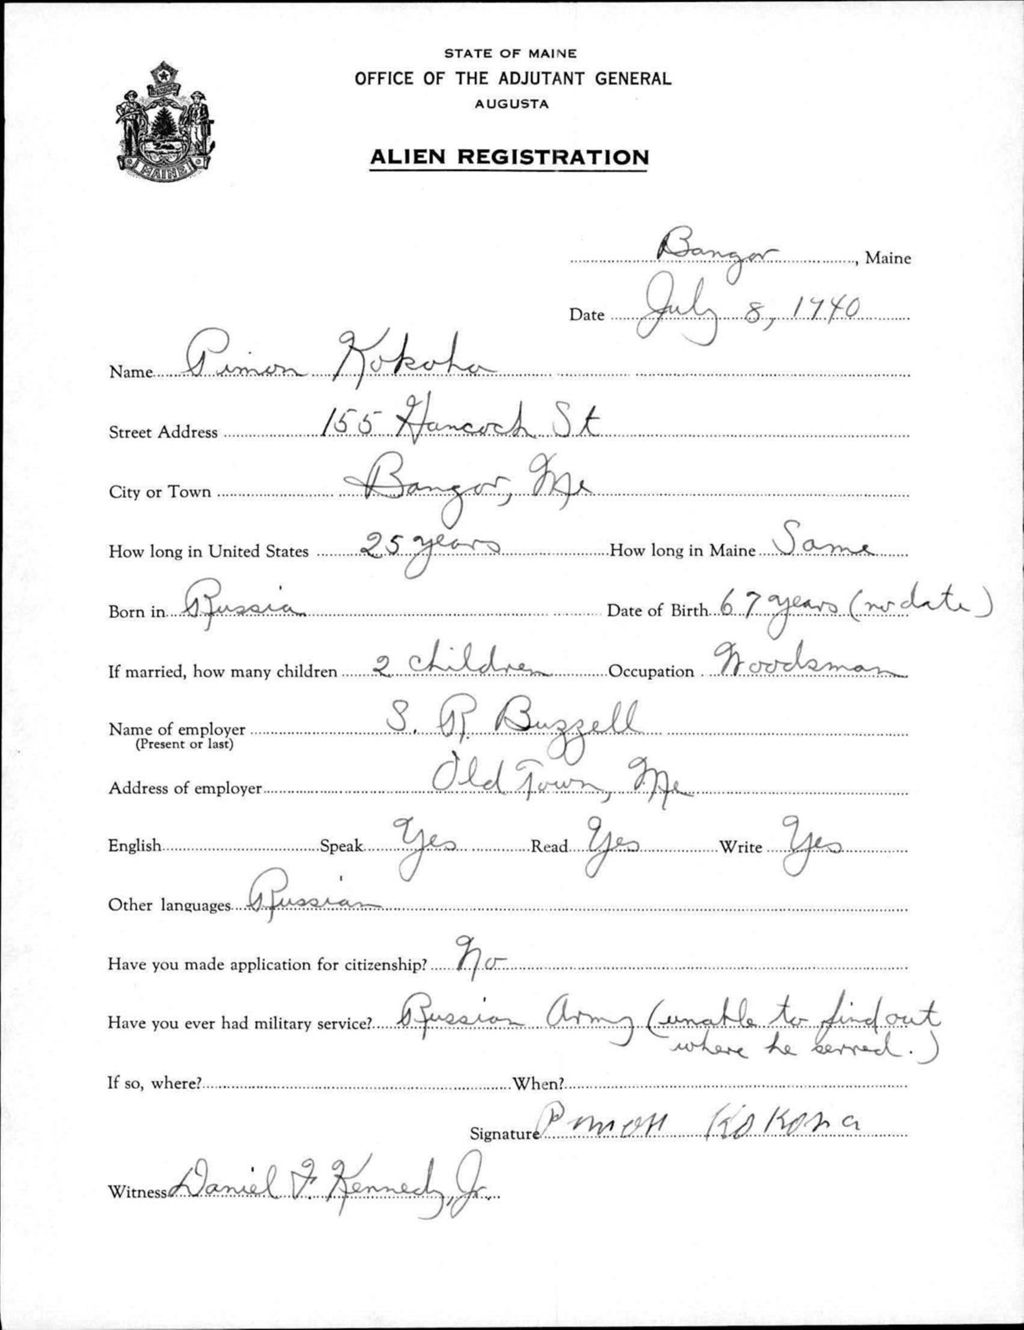 STATE OF MAINE
OFFICE OF THE ADJUTANT GENERAL
AUGUSTA
MAINE
ALIEN REGISTRATION
Bangor, Maine
Date July 8, 1940
Name Pimon Kokoha
Street Address 155 Hancock St
City or Town Bangor, Me
How long in United States 25 years How long in Maine Same
Born in Russia Date of Birth 67 years (no date)
If married, how many children 2 children Occupation Woodsman
Name of employer S. R. Buzzell
(Present or last)
Address of employer Old Town, Me
English Speak Yes Read Yes Write Yes
Other languages Russian
Have you made application for citizenship? No
Have you ever had military service? Russian Army (unable to find out
where he served.)
If so, where? When?
Signature Pimon
Witness Daniel F. Kennedy, Jr.